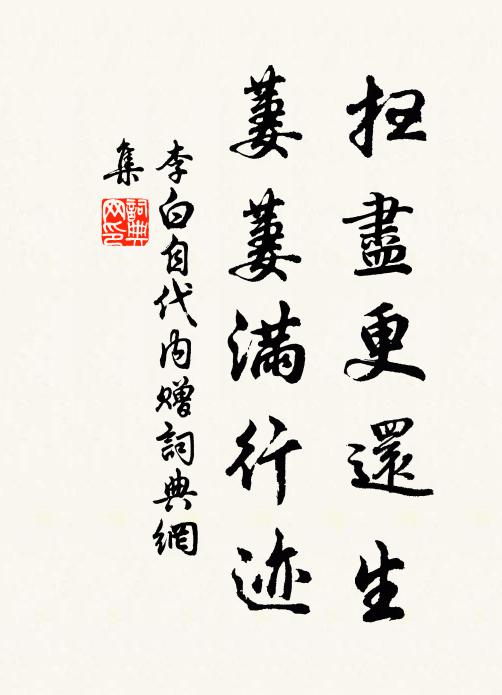 扫盡更還生
萋萋滿行迹
李白自代内贈詞典網
集
詞典网印